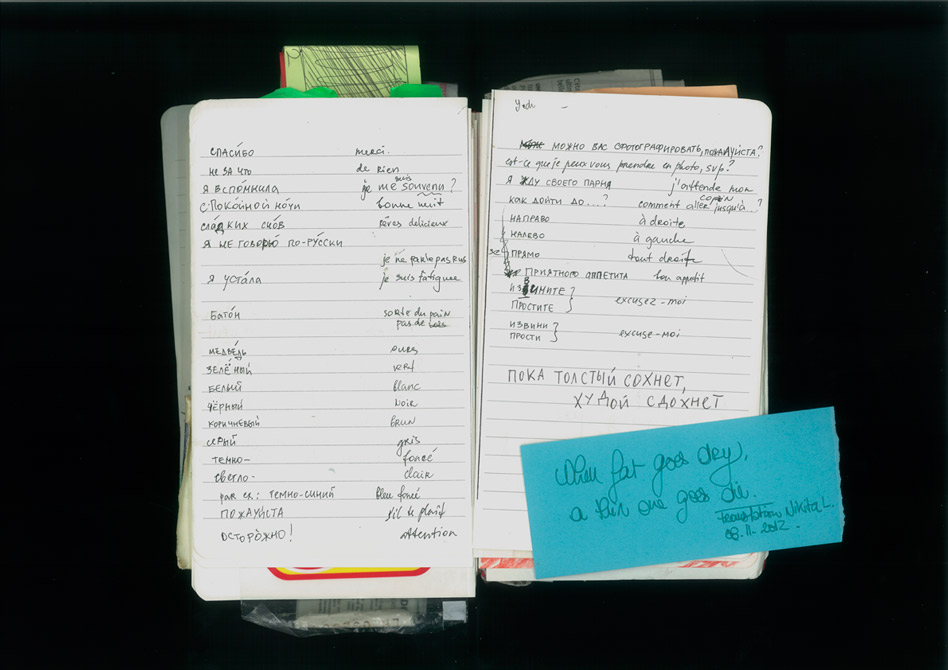 СПАСИБО merci.
НЕ ЗА ЧТО de rien
Я ВСПОМНИЛА je me suis souvenu ?
СПОКОЙНОЙ НОЧИ bonne nuit
СЛАДКИХ СНОВ rêves delicieux
Я НЕ ГОВОРЮ ПО-РУССКИ
je ne parle pas rus
Я УСТАЛА je suis fatiguee
БАТОН sorte du pain
pas de
МЕДВЕДЬ ours
ЗЕЛЁНЫЙ vert
БЕЛЫЙ blanc
ЧЁРНЫЙ noir
КОРИЧНЕВЫЙ BRUN
СЕРЫЙ gris
ТЕМНО- foncé
СВЕТЛО- clair
par ex: ТЕМНО-СИНИЙ bleu foncé
ПОЖАУЙСТА s'il te plaît
ОСТОРОЖНО! attention
МОЖНО ВАС СФОТОГРАФИРОВАТЬ, ПОЖАЛУЙСТА?
est-ce que je peux vous prendre en photo, svp?
Я ЖДУ СВОЕГО ПАРНЯ j'attende mon copain
КАК ДОЙТИ ДО...? comment aller jusqu'à..?
НАПРАВО à droite
НАЛЕВО à gauche
ПРЯМО tout droite
ПРИЯТНОГО АППЕТИТА bon appetit
ИЗВИНИТЕ
ПРОСТИТЕ excusez-moi
ИЗВИНИ
ПРОСТИ excuse-moi
ПОКА ТОЛСТЫЙ СОХНЕТ,
ХУДОЙ СДОХНЕТ
When fat goes dry,
a thin one goes die.
translation Nikita L.
08.11.2012.